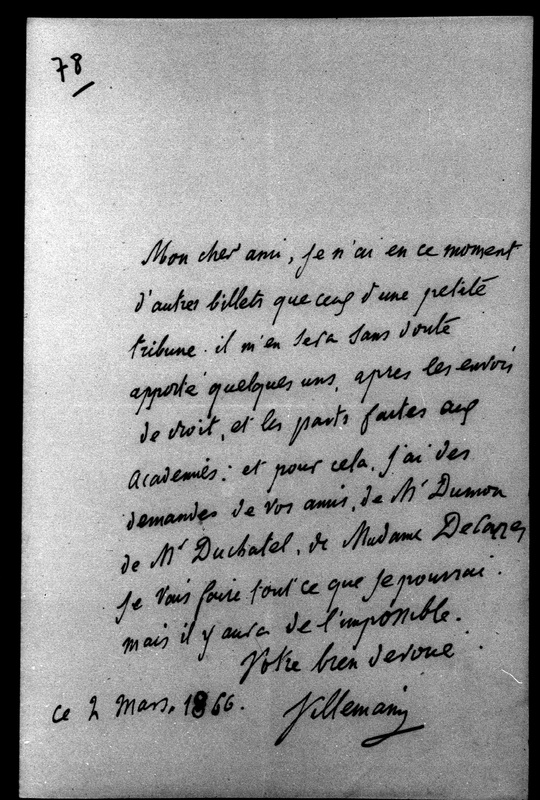 78
Mon cher ami, je n'ai en ce moment
d'autres billets que ceux d'une petite
tribune. il m'en sera sans doute
apporté quelques uns, apres les envois
de droit, et les parts faites aux
Academies: et pour cela, j'ai des
demandes de vos amis, de Mr Dumon
de Mr Duchatel, de Madame Decazes
je vais faire tout ce que je pourrai.
mais il y aura de l'impossible.
Votre bien devoué.
ce 2 Mars. 1866.
Villemain